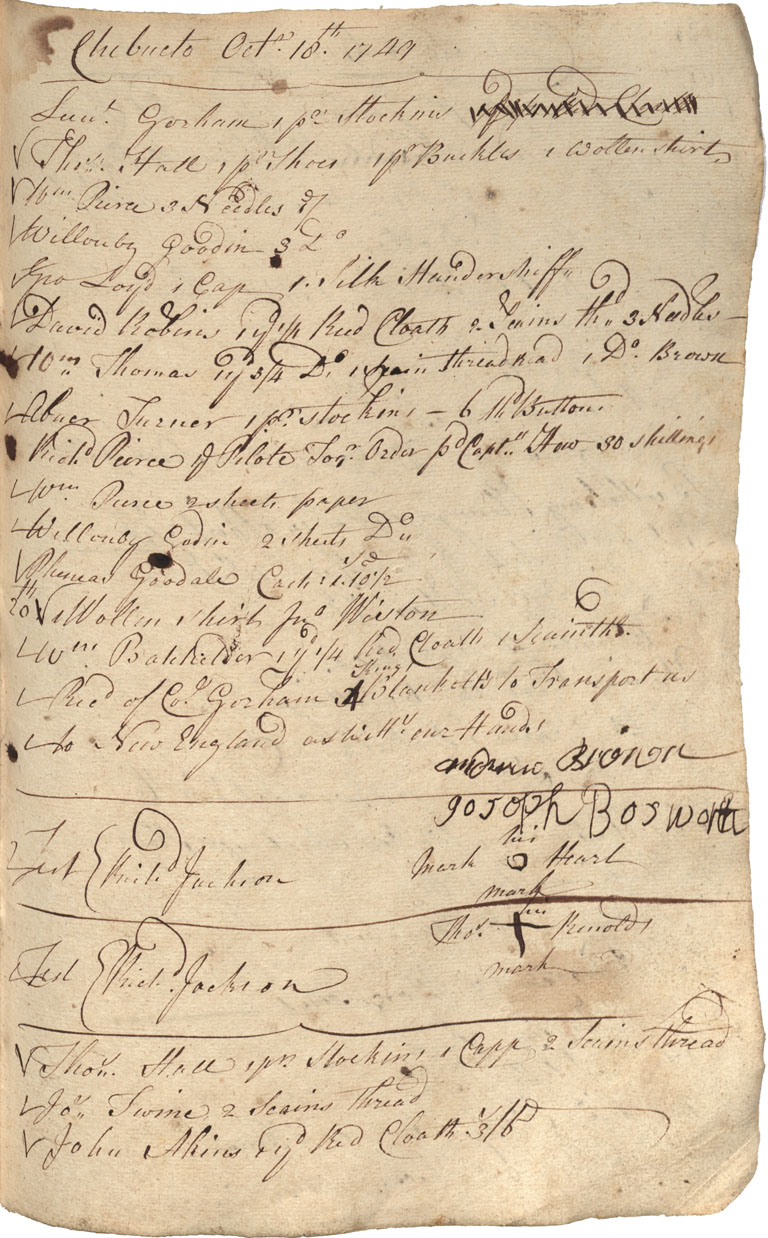 Chebucto Octr. 18th. 1749
Lieut. Gorham 1 pr Stockins
Thos. Hall 1 pr Shoes 1 pr Buckles 1 wollen shirt
Wm Pierce 3 Needles
Willouby Goodin 3 Do
Jno Loyd 1 Cap 1 Silk Handershiff
David Robins 1 yd 1/4 Red Cloath 2 Scains thd 3 Needles
Wm Thomas 1 yd 3/4 Do 1 Scain thread Read 1 Do. Brown
Abner Turner 1 pr stockins - 6 Buttons
Richd Peirce Pilote Order pd Captn How 30 shillings
Wm Pierce 2 sheets paper
Willouby Godin 2 sheets Do
Thomas Goodale Cash
20th 1 Wollen shirt Jno Wiston
Wm. Bahhelder 1 yd 1/4 Red Cloath 1 Scain thd.
Recd of Col Gorham 4 Kings Blanketts to Transport us
to New England as witts our Hands
Andrew Brown
Joseph Bosworth
Test Richd Jackson
his
Mark O Hearl
mark
his
Thos. + Renolds
mark
Test Richd Jackson
Thos. Hall 1 pr Stockins 1 Capp 2 Scains thread
Jos Twine 2 Scains thread
John Akins 1 yd Red Cloath 3/6